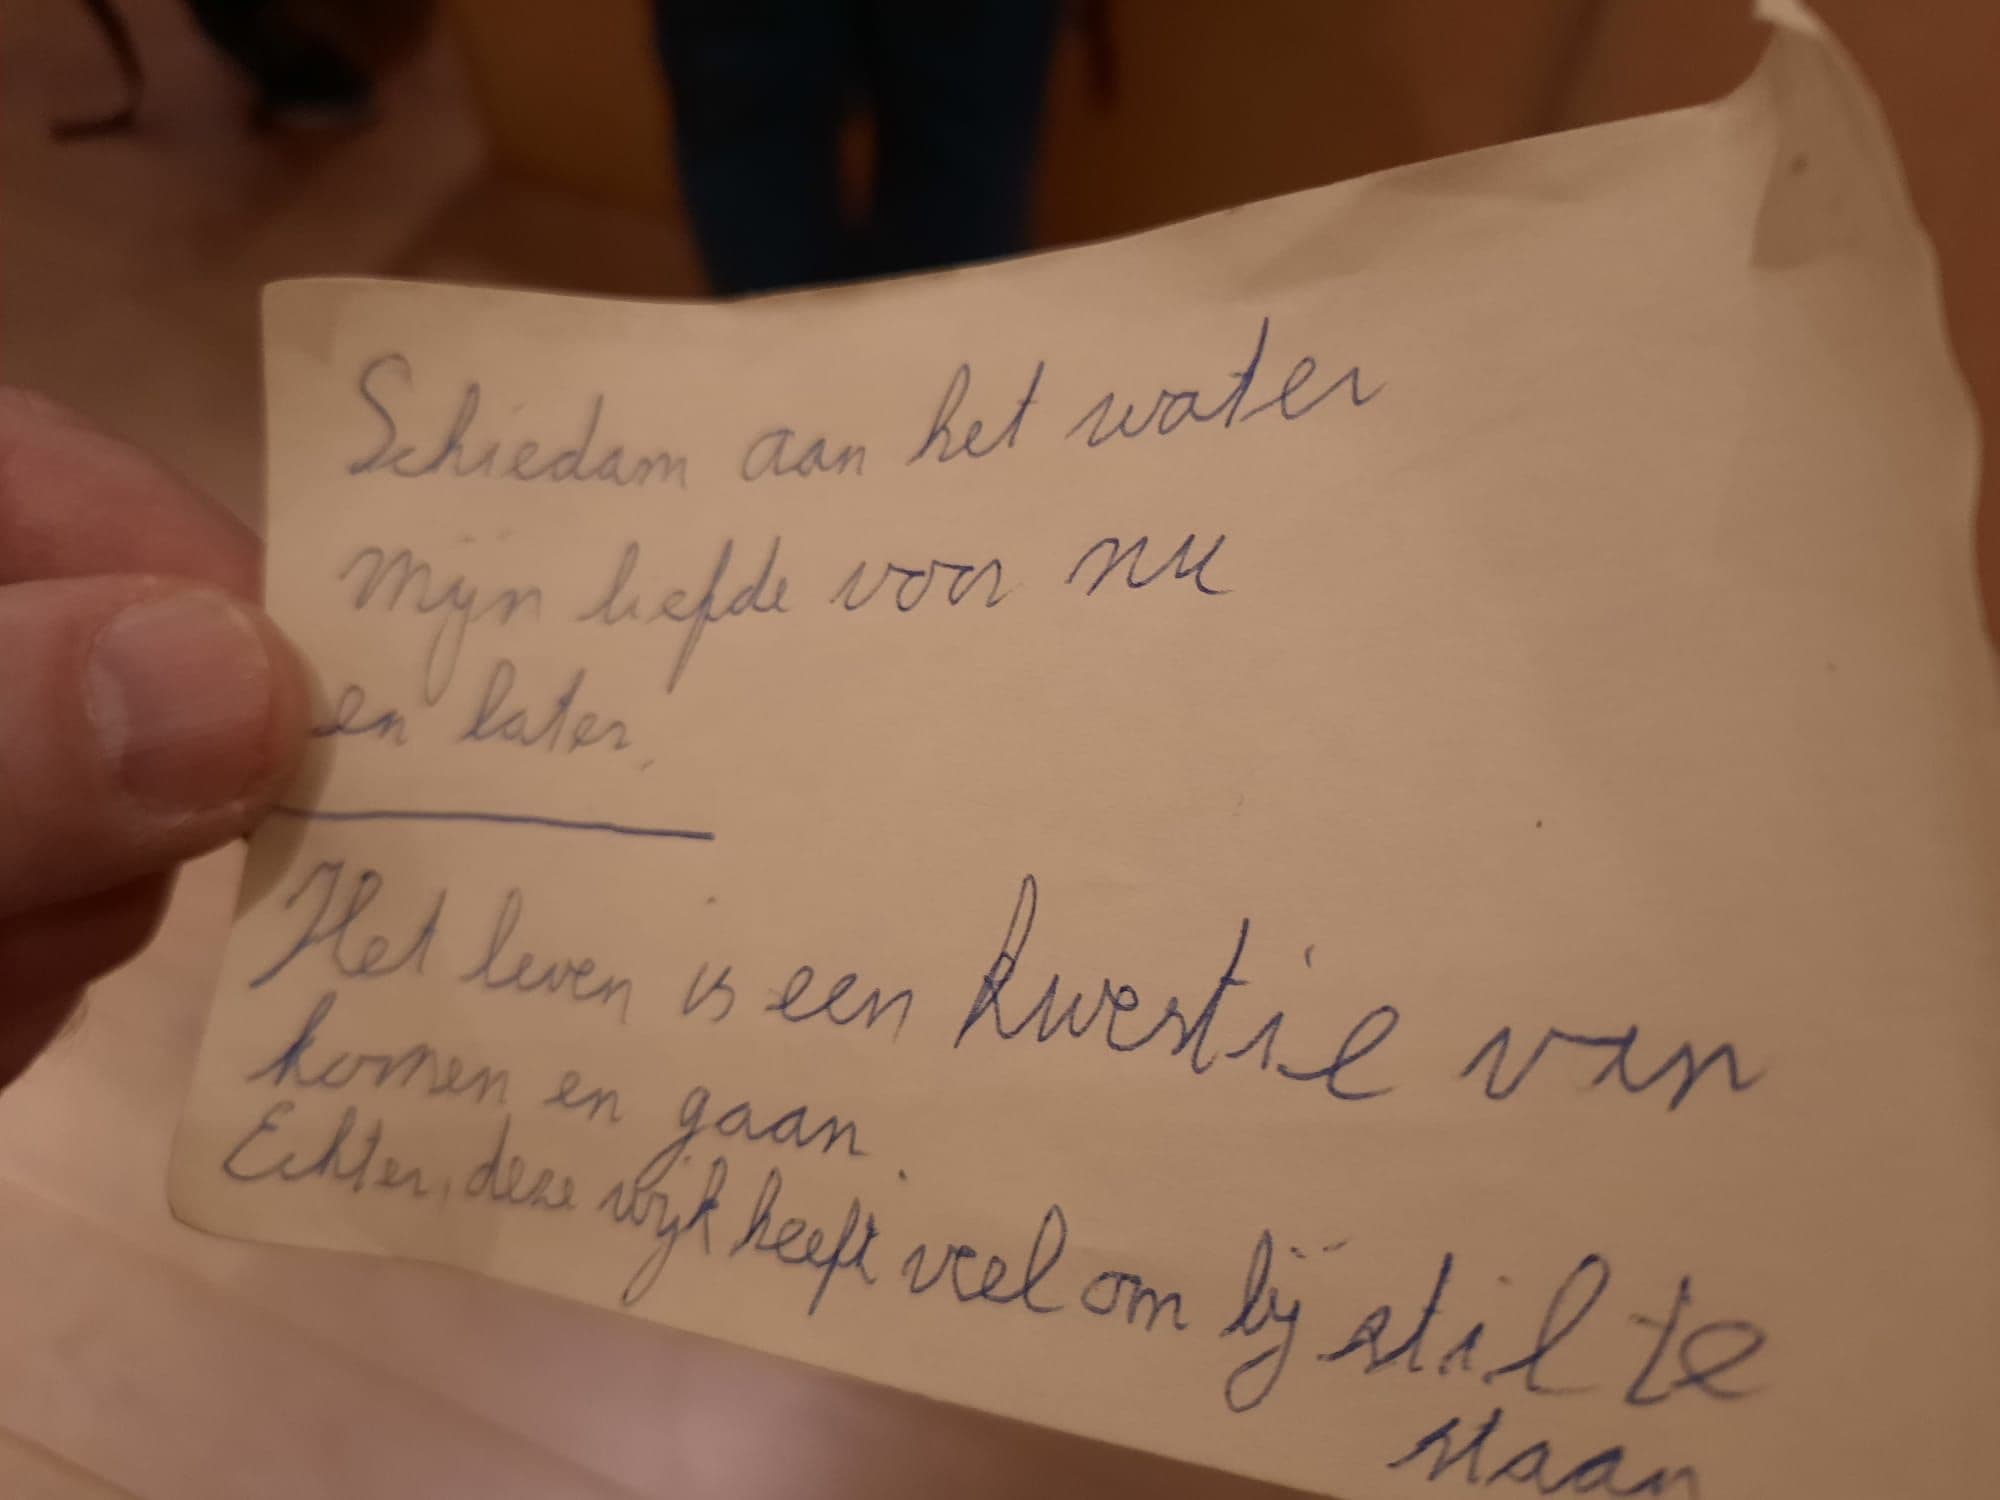 Schiedam aan het water
Mijn liefde voor nu
en later.
Het leven is een kwestie van
komen en gaan.
Echter, deze wijk heeft veel om bij stil te
staan